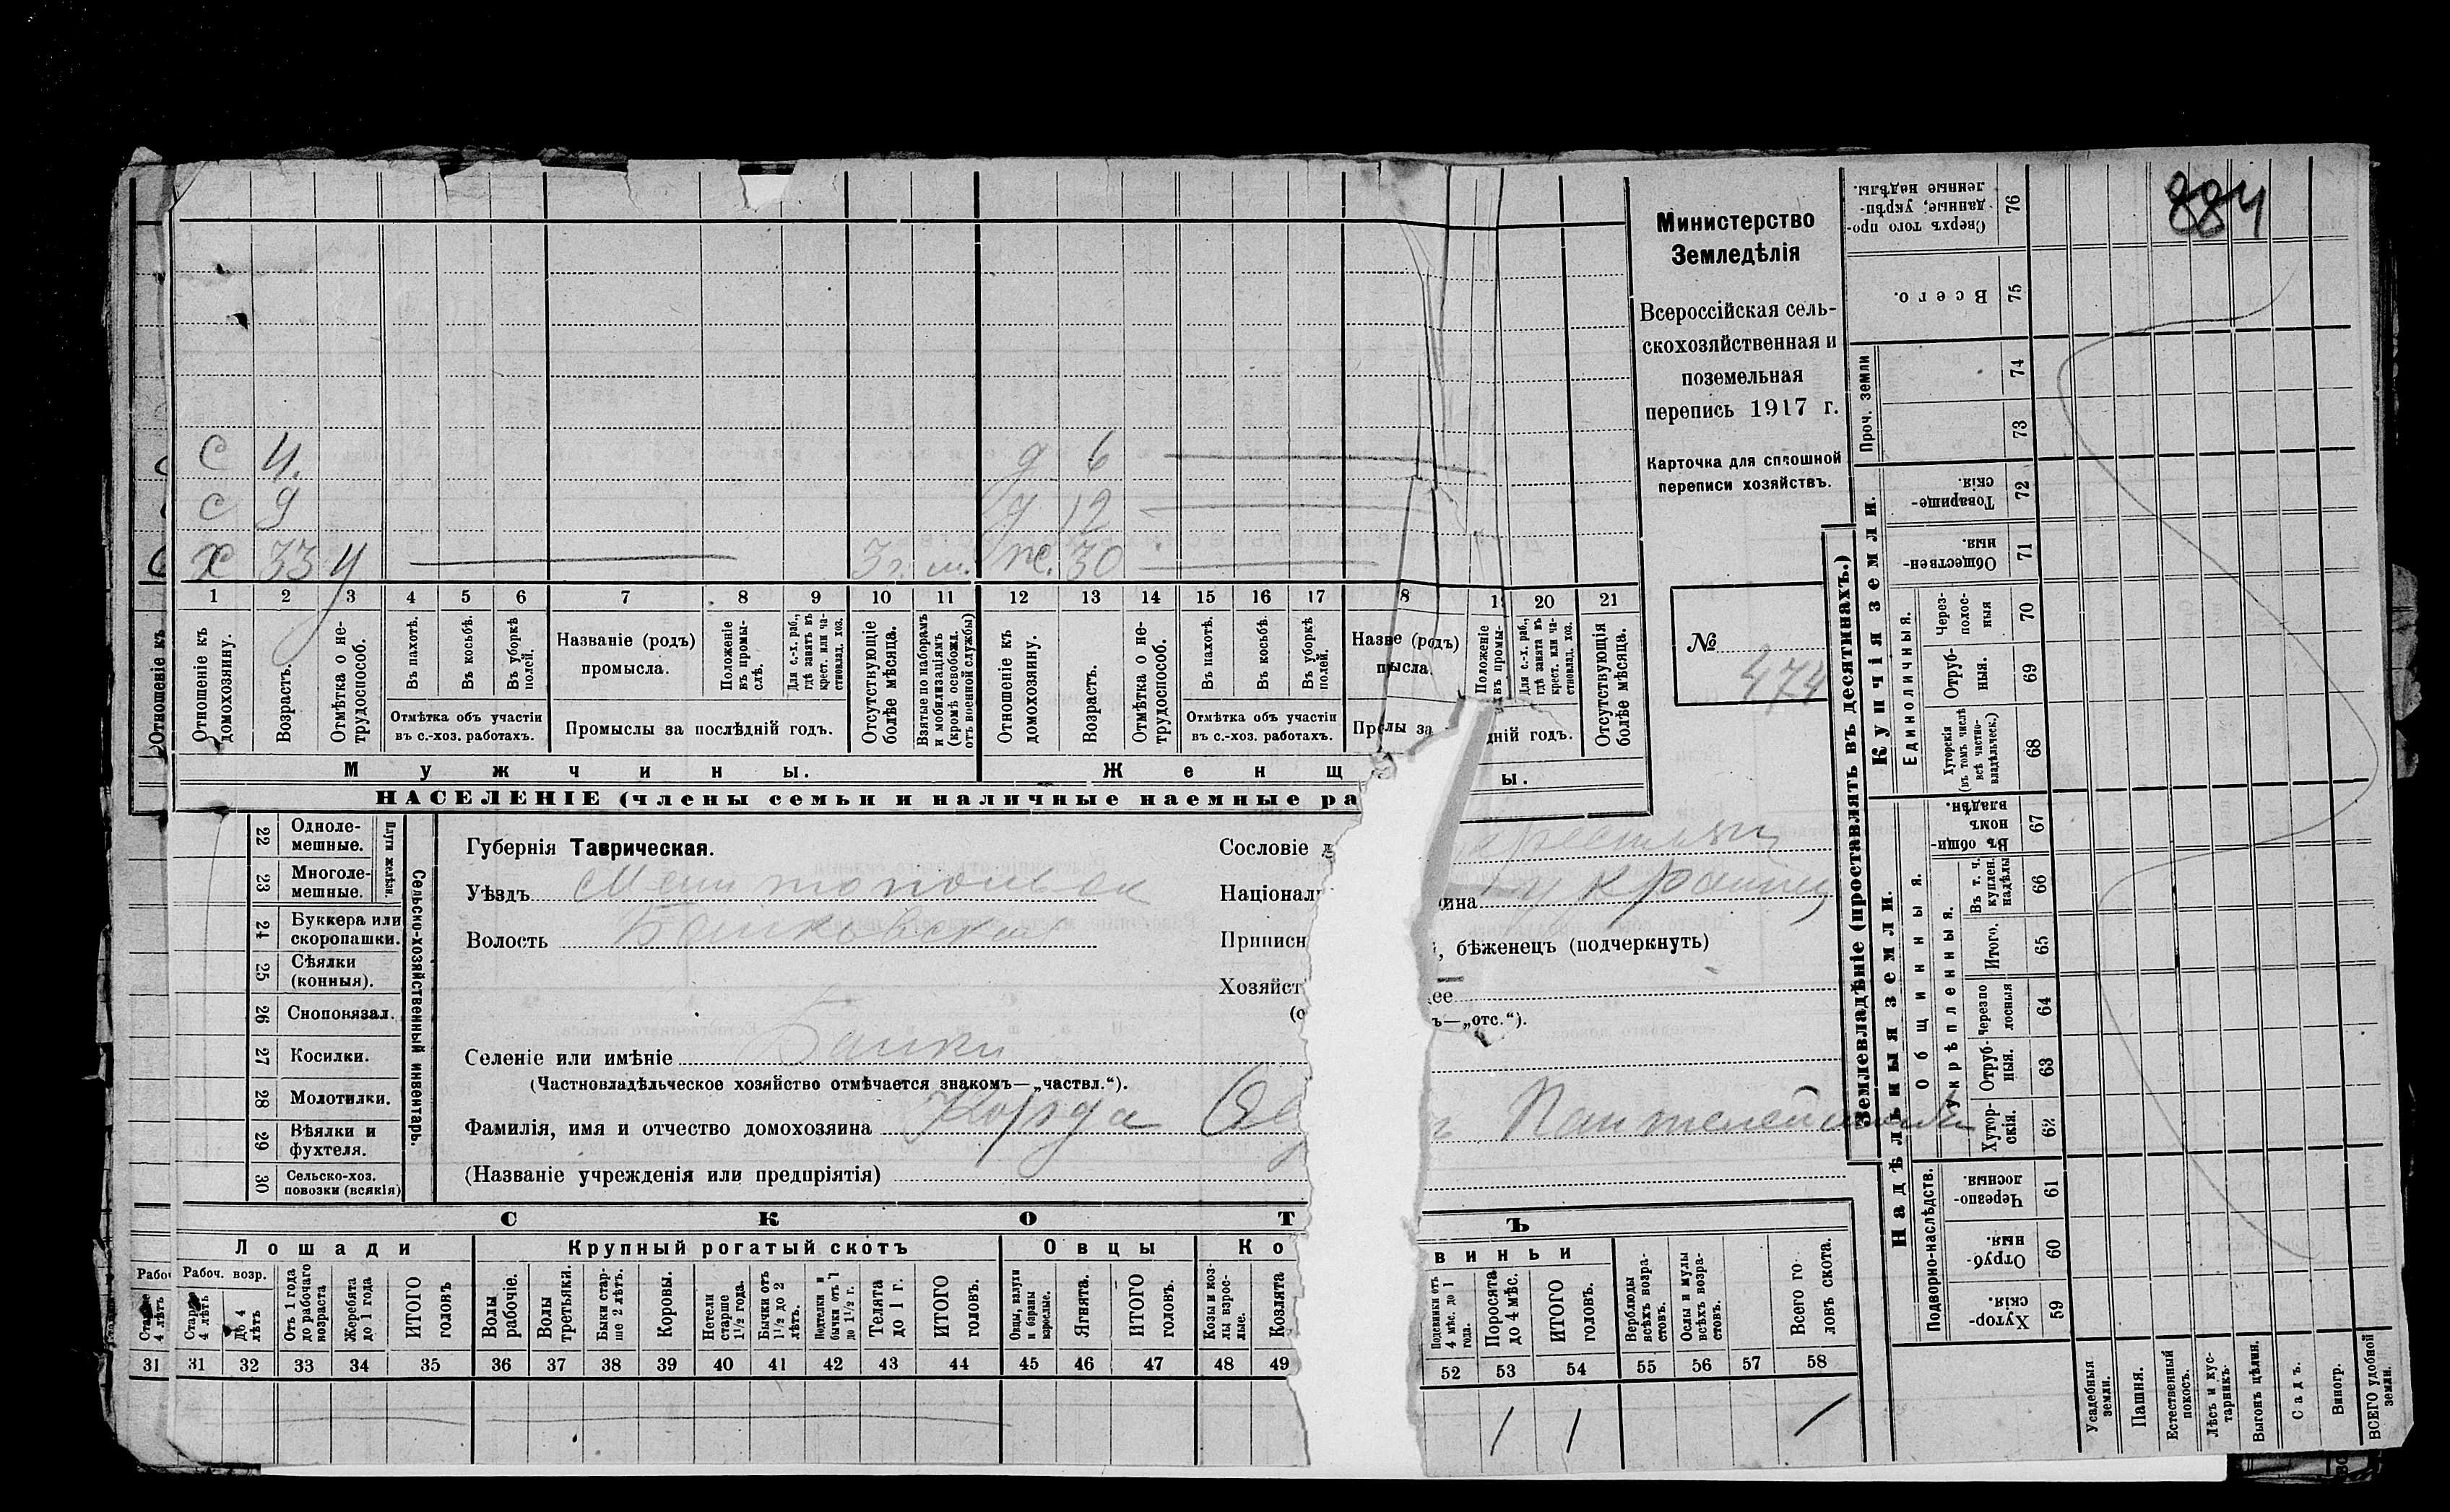 884
Министерство
Земледѣлія
Всероссійская сель-
скохозяйственная и
поземельная
перепись 1917 г.
Карточка для сплошной
переписи хозяйствъ.
№
474
с 4. д 6
с 9 д 12
х 33 у 3 г. м. ж. 30
1 2 3 4 5 6 7 8 9 10 11 12 13 14 15 16 17 8 1 20 21
Отношеніе къ
домохозяину.
Возрастъ.
Отмѣтка о не-
трудоспособ.
Въ пахотѣ.
Въ косьбѣ.
Въ уборкѣ
полей.
Отмѣтка объ участіи
въ с.-хоз. работахъ.
Названіе (родъ)
промысла.
Положеніе
въ промы-
слѣ.
Для с.-х. раб.,
гдѣ занятъ въ
крест. или ча-
стновлад. хоз.
Промыслы за послѣдній годъ.
Отсутствующіе
болѣе мѣсяца.
Взятые по наборамъ
и мобилизаціямъ
(кромѣ освобожд.
отъ военной службы)
Отношеніе къ
домохозяину.
Возрастъ.
Отмѣтка о не-
трудоспособ.
Въ пахотѣ.
Въ косьбѣ.
Въ уборкѣ
полей.
Отмѣтка объ участіи
въ с.-хоз. работахъ.
Назве (родъ)
мысла.
Положеніе
въ промы-
Для с.-х. раб.,
гдѣ занята въ
крест. или ча-
стновлад. хоз.
дній годъ.
Отсутствующія
болѣе мѣсяца.
Мужчины.
Женщ
ы.
НАСЕЛЕНІЕ (члены семьи и наличные наемные ра
22 Однолe-
мешные.
23 Многоле-
мешные.
Плуги желѣзн.
24 Буккера или
скоропашки.
25 Сѣялки
(конныя).
26 Сноповязал.
27 Косилки.
28 Молотилки.
29 Вѣялки и
фухтеля.
30 Сельско-хоз.
повозки (всякія)
Сельско-хозяйственный инвентарь.
Губернія Таврическая.
Уѣздъ Мелитопольск
Волость
Селеніе или имѣніе Банки
(Частновладѣльческое хозяйство отмѣчается знакомъ—„частвл.“).
Фамилія, имя и отчество домохозяина Корда Пантелеймон
(Названіе учрежденія или предпріятія)
Сословіе д
Націонал ина украин
Приписн , бѣженецъ (подчеркнуть)
Хозяйст ее
(о ъ—„отс.“).
СКОТ Ъ
Лошади
Крупный рогатый скотъ
Овцы
Ко
виньи
Рабоч. возр.
Старше
4 лѣтъ
До 4
лѣтъ
Отъ 1 года
до рабочаго
возраста
Жеребята
до 1 года
ИТОГО
головъ
Волы
рабочіе.
Волы
третьяки.
Быки стар-
ше 2 лѣтъ.
Коровы.
Нетели
старше
1½ года.
Бычки отъ
1½ до 2
лѣтъ.
Подтелки и
бычки отъ 1
до 1½ г.
Телята
до 1 г.
ИТОГО
головъ.
Овцы, валухи
и бараны
взрослые.
Ягнята.
ИТОГО
головъ.
Козы и коз-
лы взрос-
лые.
Козлята
Подсвинки отъ
4 мѣс. до 1
года.
Поросята
до 4 мѣс.
ИТОГО
головъ.
Верблюды
всѣхъ возра-
стовъ.
Ослы и мулы
всѣхъ возра-
стовъ.
Всего го-
ловъ скота.
31 31 32 33 34 35 36 37 38 39 40 41 42 43 44 45 46 47 48 49 52 53 54 55 56 57 58
1 1 1
Землевладѣніе (проставлять въ десятинахъ.)
Надѣльныя земли.
Купчія земли.
Проч. земли
Подворно-наслѣдств.
Общинныя.
Укрѣпленныя.
Единоличныя.
Сверхъ того про-
данные, укрѣп-
ленные надѣлы.
76
Всего.
75
74
73
Товарище-
скія.
72
Обществен-
ныя.
71
Через-
полос-
ныя
70
Отруб-
ныя.
69
Хуторскія
(въ томъ числѣ
всѣ частно-
владѣльческ.)
68
Въ общи-
номъ
владѣн.
67
Въ т. ч.
куплен.
надѣлы
66
Итого.
65
Черезпо
лосныя
64
Отруб-
ныя.
63
Хутор-
скія.
62
Черезпо-
лосныя.
61
Отруб-
ныя.
60
Хутор-
скія.
59
Усадебныя
земли.
Пашня.
Естественный
покосъ.
Лѣсъ и кус-
тарникъ.
Выгонъ цѣлин.
Садъ.
Виногр.
ВСЕГО удобной
земли.